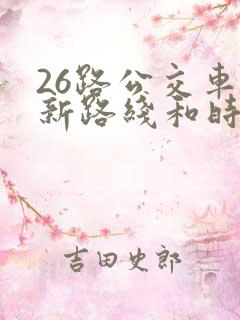 26路公交车
新路线和时
吉田史郎